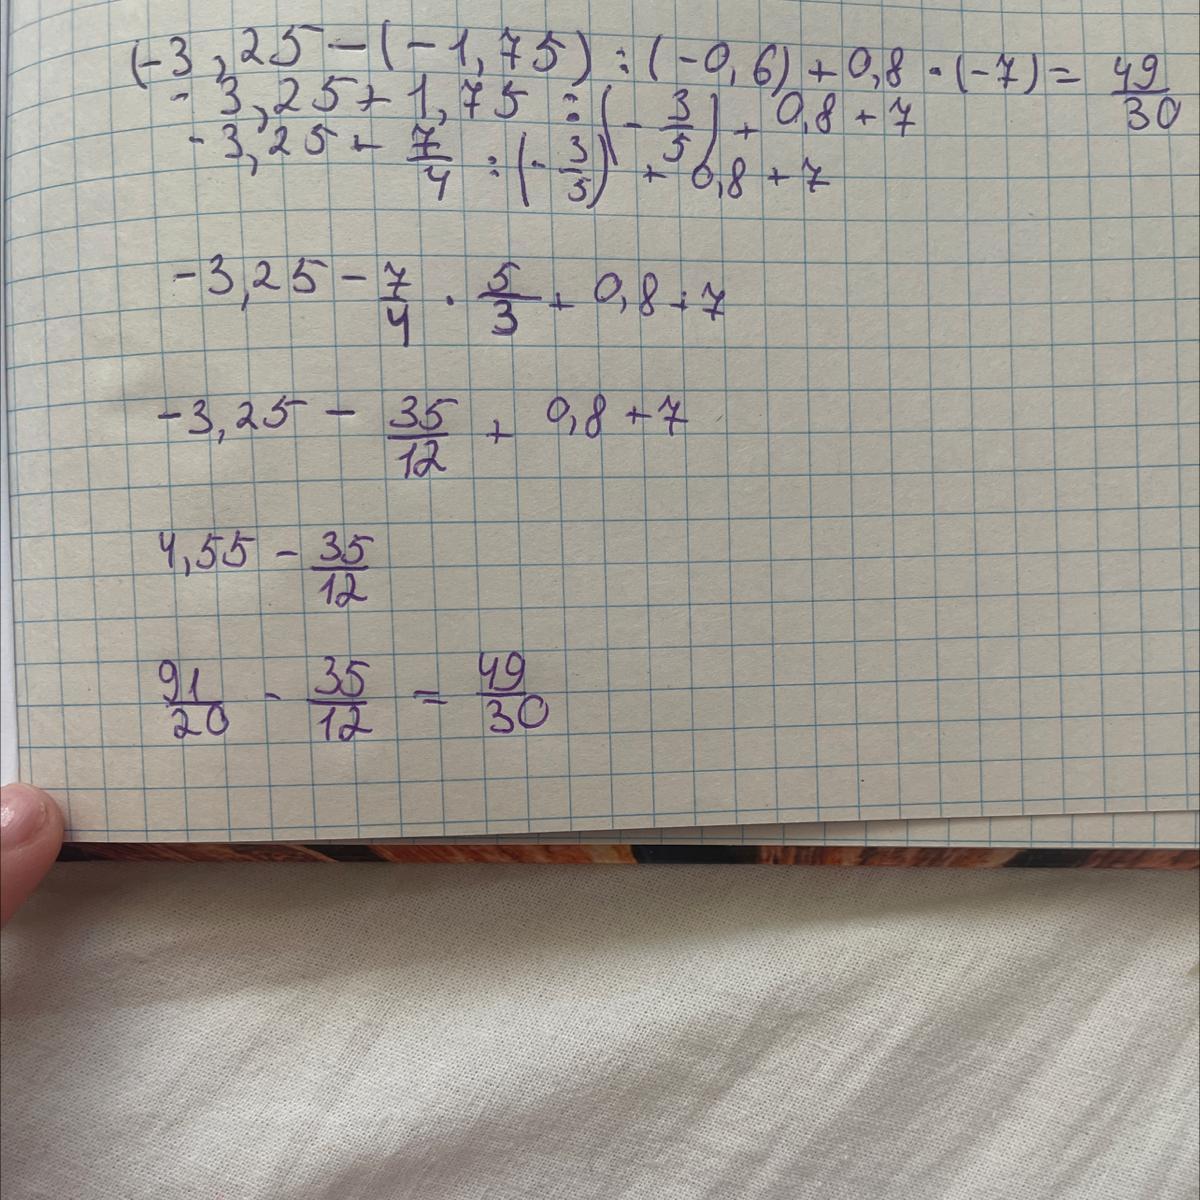 (-3,25-(-1,75):(-0,6)+0,8·(-7)= 49/30
-3,25+1,75:(-3/5)+0,8+7
-3,25+7/4:(-3/5)+0,8+7
-3,25-7/4·5/3+0,8+7
-3,25-35/12+0,8+7
4,55-35/12
91/20-35/12=49/30